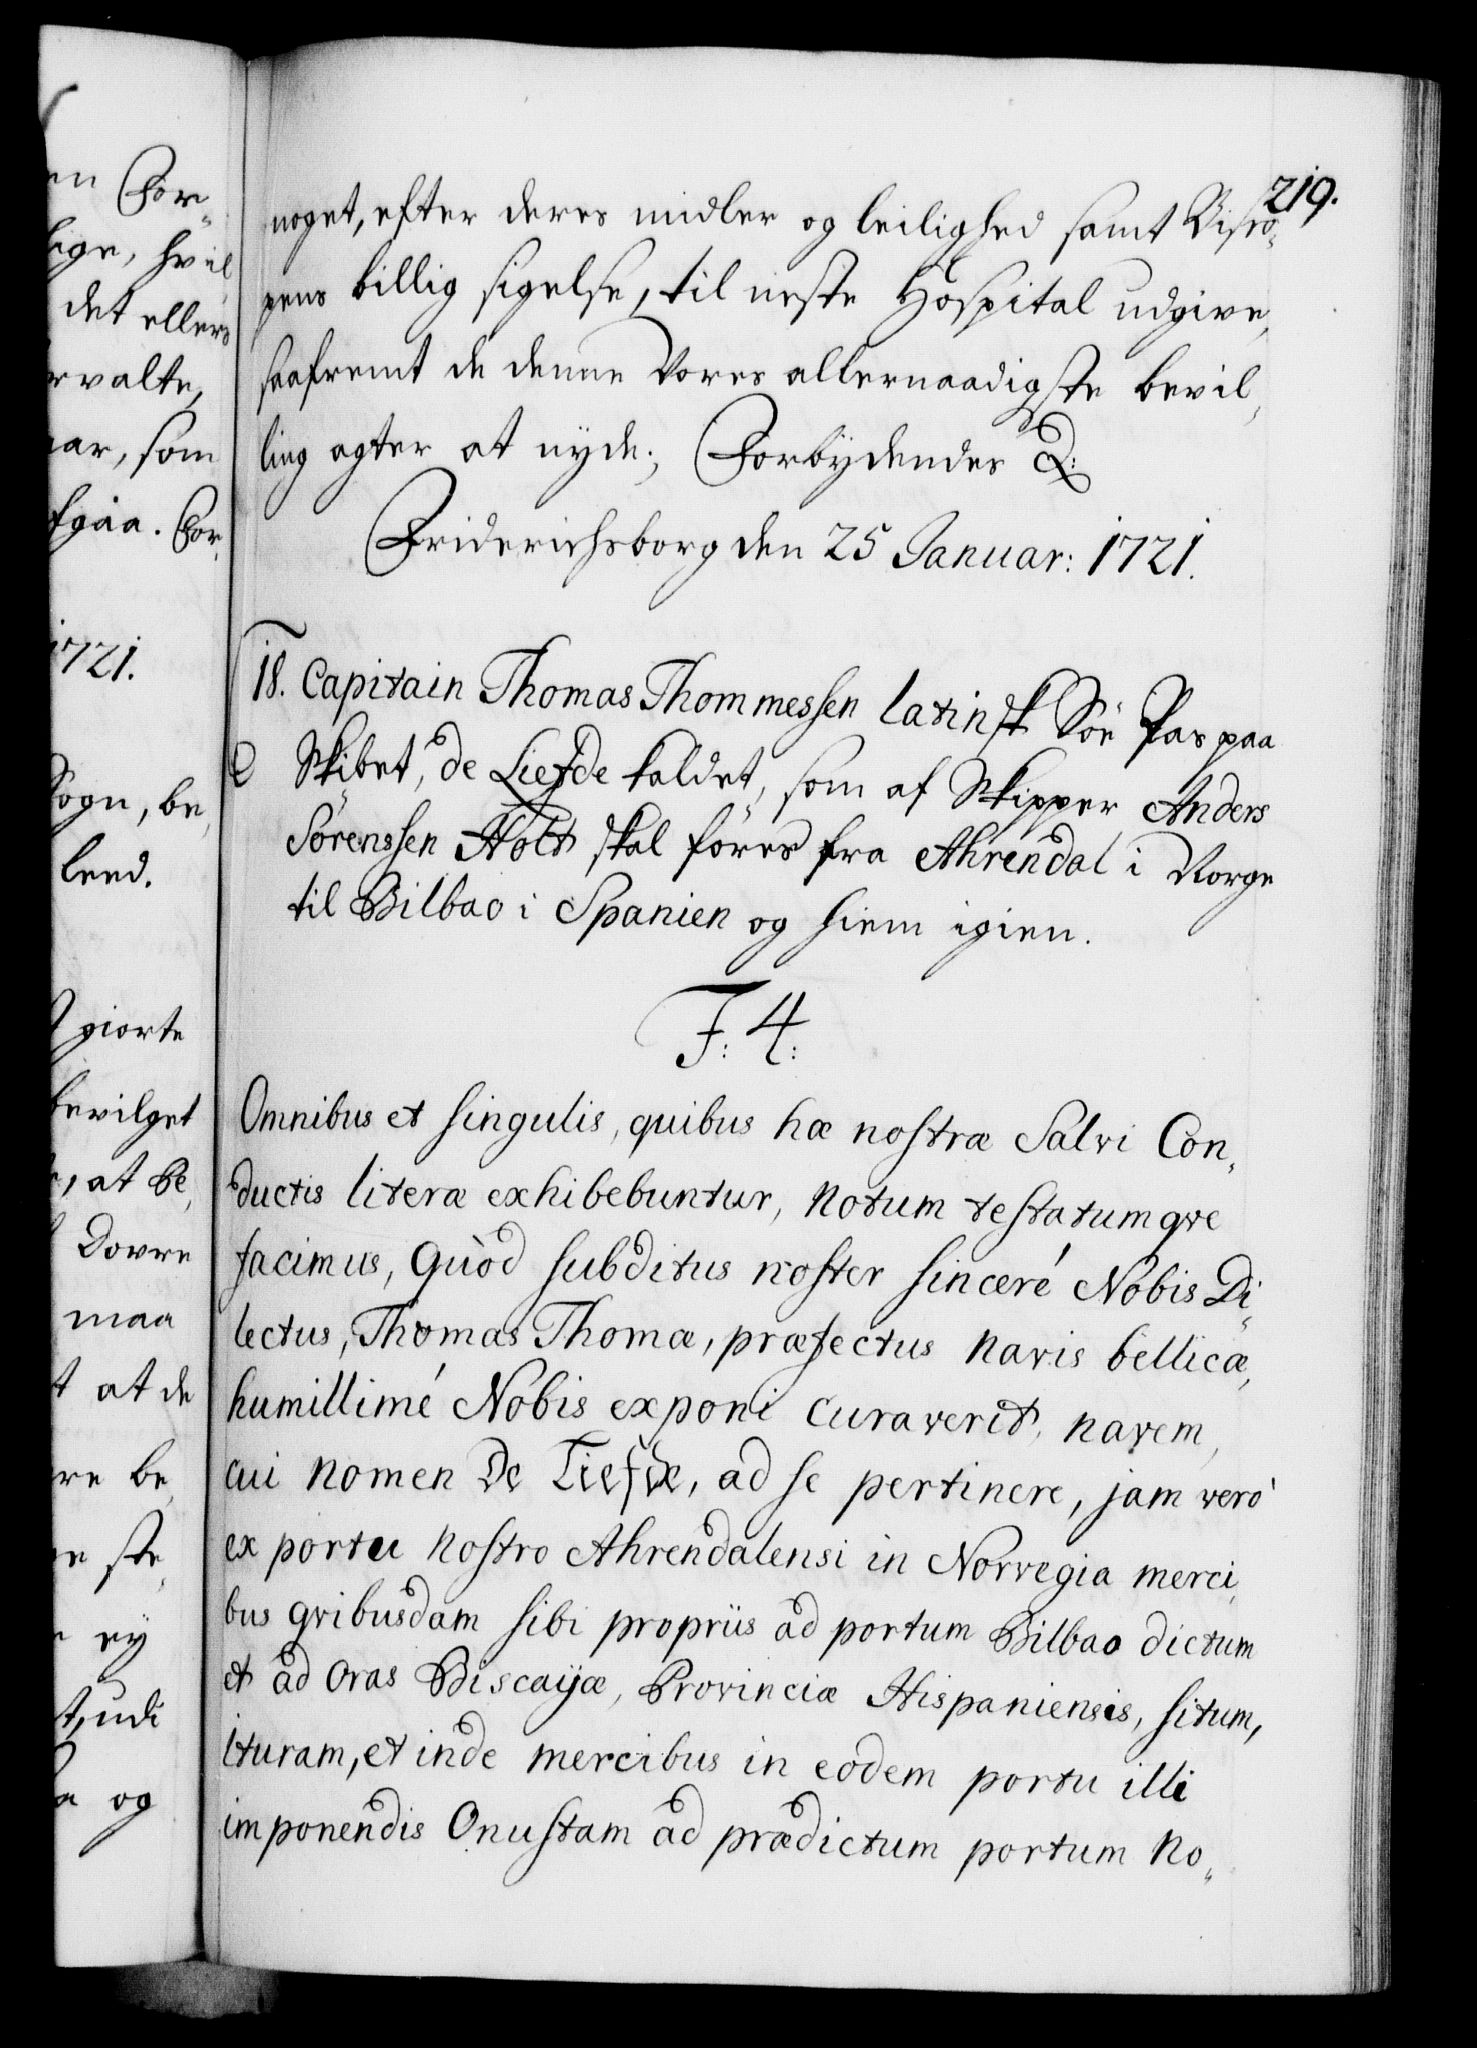 219.
noget, efter deres midler og leilighed samt Bisko-
pens billig sigelse, til neste Hospital udgive,
saafremt de denne Vores allernaadigste bevil-
ling agter at nyde; Forbydendes &:
Friderichsborg den 25 Januar: 1721.
18. Capitain Thomas Thommessen latinsk Söe Pas paa
Skibet, de Liefde kaldet, som af Skipper Anders
Sörenssen Holt skal föres fra Ahrendal i Norge
til Bilbao i Spanien og hiem igien.
F: 4:
Omnibus et singulis, quibus hæ nostræ Salvi Con-
ductis literæ exhibebuntur, notum testatumqve
facimus, Quòd subditus noster sinceré Nobis Di-
lectus, Thomas Thomæ, præfectus navis bellicæ,
humillimé Nobis exponi curaverit, navem,
cui nomen De Liefde, ad se pertinere, jam verò
ex portu nostro Ahrendalensi in Norvegia merci-
bus qvibusdam sibi propriis ad portum Bilbao dictum
et ad oras Biscaijæ, Provinciæ Hispaniensis, situm,
ituram, et inde mercibus in eodem portu illi
imponendis Onustam ad prædictum portum no-
en For-
lige, hvil-
det ellers
rvalte,
aar, som
fgaa. For-
1721.
Sogn, be-
leed.
giorte
bevilget
, at Be-
Dovre
maa
t at de
re be-
ste-
ey
t, udi
og